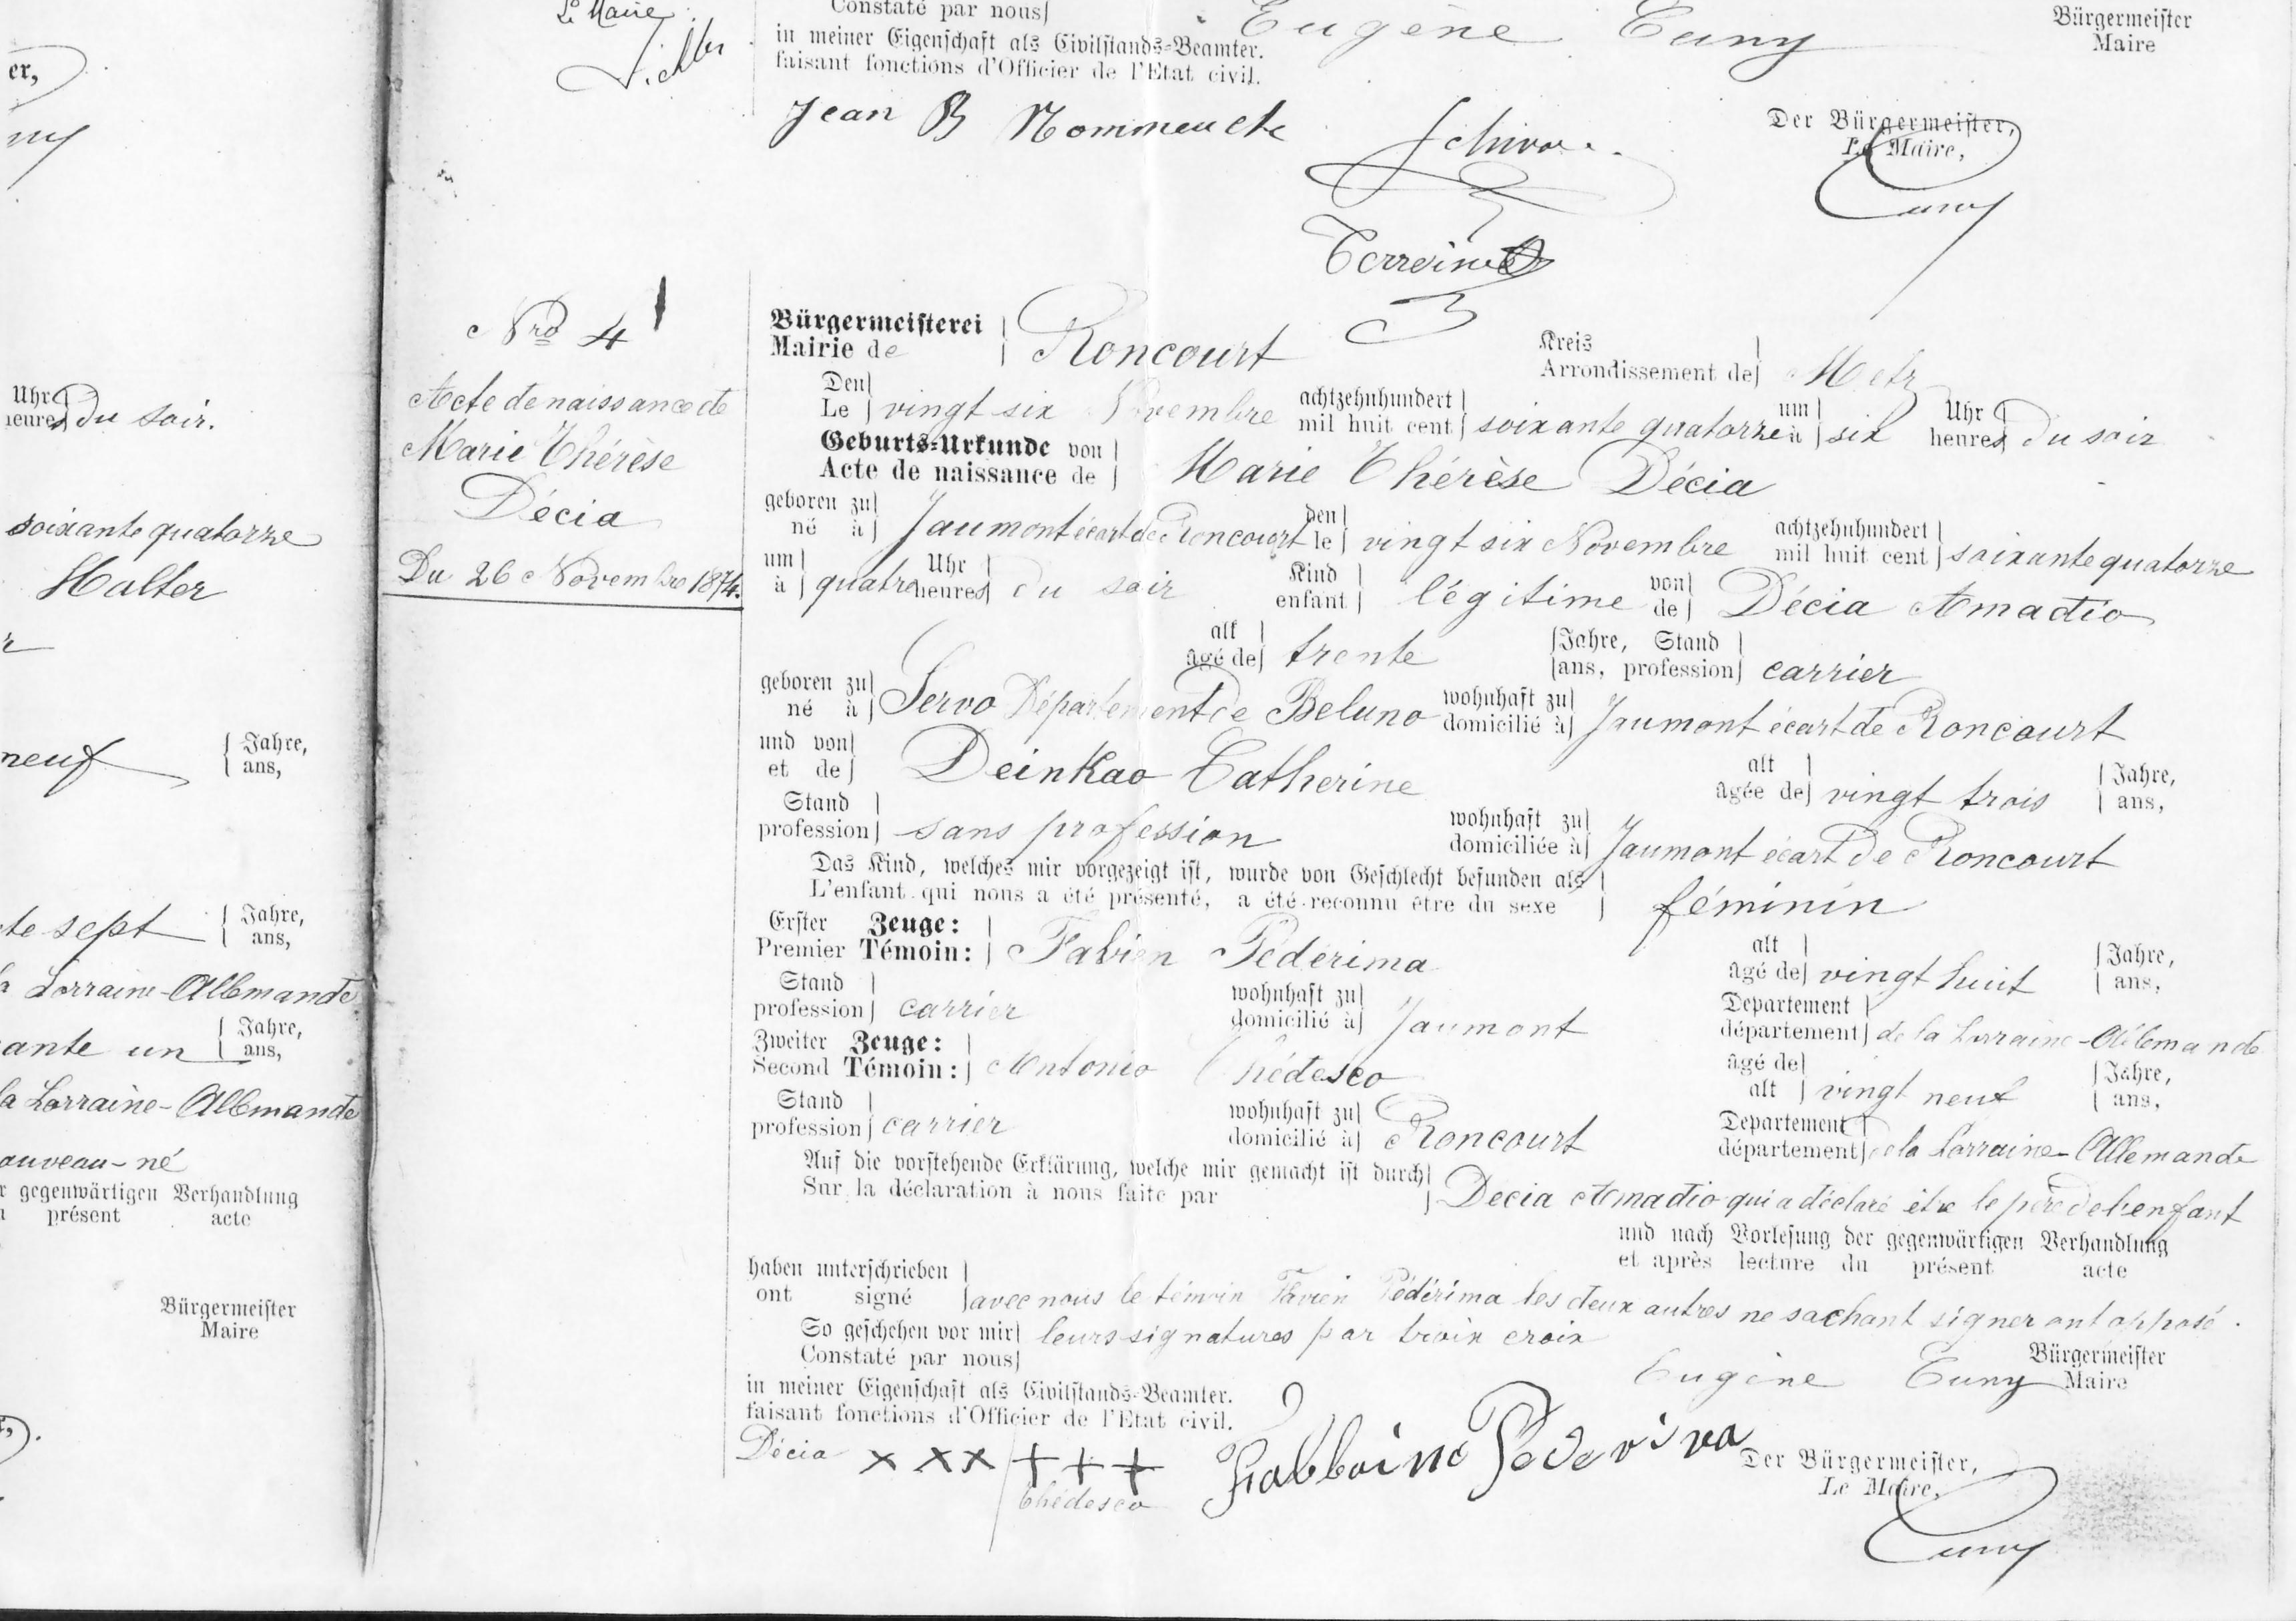 er,
Uhr
heures du soir.
soixante quatorze
Halter
neuf Jahre,
ans,
te sept Jahre,
ans,
la Lorraine-Allemande
ante un Jahre,
ans,
la Lorraine-Allemande
ouveau-né
r gegenwärtigen Verhandlung
présent acte
Bürgermeister
Maire
Le Maire
Constaté par nous
in meiner Eigenschaft als Civilstands-Beamter.
faisant fonctions d'Officier de l'Etat civil.
Eugène Cuny
Bürgermeister
Maire
Jean B
Der Bürgermeister,
Le Maire,
Cuny
Nro 4
Acte de naissance de
Marie Thérèse
Décia
Du 26 Novembre 1874.
Bürgermeisterei
Mairie de Roncourt
Kreis
Arrondissement de Metz
Den
Le vingt six Novembre achtzehnhundert
mil huit cent soixante quatorze um
à six Uhr
heures du soir
Geburts-Urkunde von
Acte de naissance de Marie Thérèse Décia
geboren zu
né à Jaumont écart de Roncourt den
le vingt six Novembre achtzehnhundert
mil huit cent soixante quatorze
um
à quatre Uhr
heures du soir Kind
enfant légitime von
de Décia Amadio
alt
âgé de trente Jahre, Stand
ans, profession carrier
geboren zu
né à Servo Département de Beluno wohnhaft zu
domicilié à Jaumont écart de Roncourt
und von
et de Deinkao Catherine alt
âgée de vingt trois Jahre,
ans,
Stand
profession sans profession wohnhaft zu
domiciliée à Jaumont écart de Roncourt
Das Kind, welches mir vorgezeigt ist, wurde von Geschlecht befunden als
L'enfant qui nous a été présenté, a été reconnu être du sexe féminin
Erster Zeuge:
Premier Témoin: Fabien Pédérima alt
âgé de vingt huit Jahre,
ans,
Stand
profession carrier wohnhaft zu
domicilié à Jaumont Departement
département de la Lorraine-Allemande
Zweiter Zeuge:
Second Témoin: Antonio Thédesco âgé de
alt vingt neuf Jahre,
ans,
Stand
profession carrier wohnhaft zu
domicilié à Roncourt Departement
département de la Lorraine-Allemande
Auf die vorstehende Erklärung, welche mir gemacht ist durch
Sur la déclaration à nous faite par Décia Amadio qui a déclaré être le père de l'enfant
und nach Vorlesung der gegenwärtigen Verhandlung
et après lecture du présent acte
haben unterschrieben
ont signé avec nous le témoin Favien Pédérima les deux autres ne sachant signer ont apposé
So geschehen vor mir
Constaté par nous leurs signatures par troix croix
in meiner Eigenschaft als Civilstands-Beamter.
faisant fonctions d'Officier de l'Etat civil.
Eugène Cuny Bürgermeister
Maire
Décia x x x + + +
Thédesco
Der Bürgermeister,
Le Maire,
Cuny